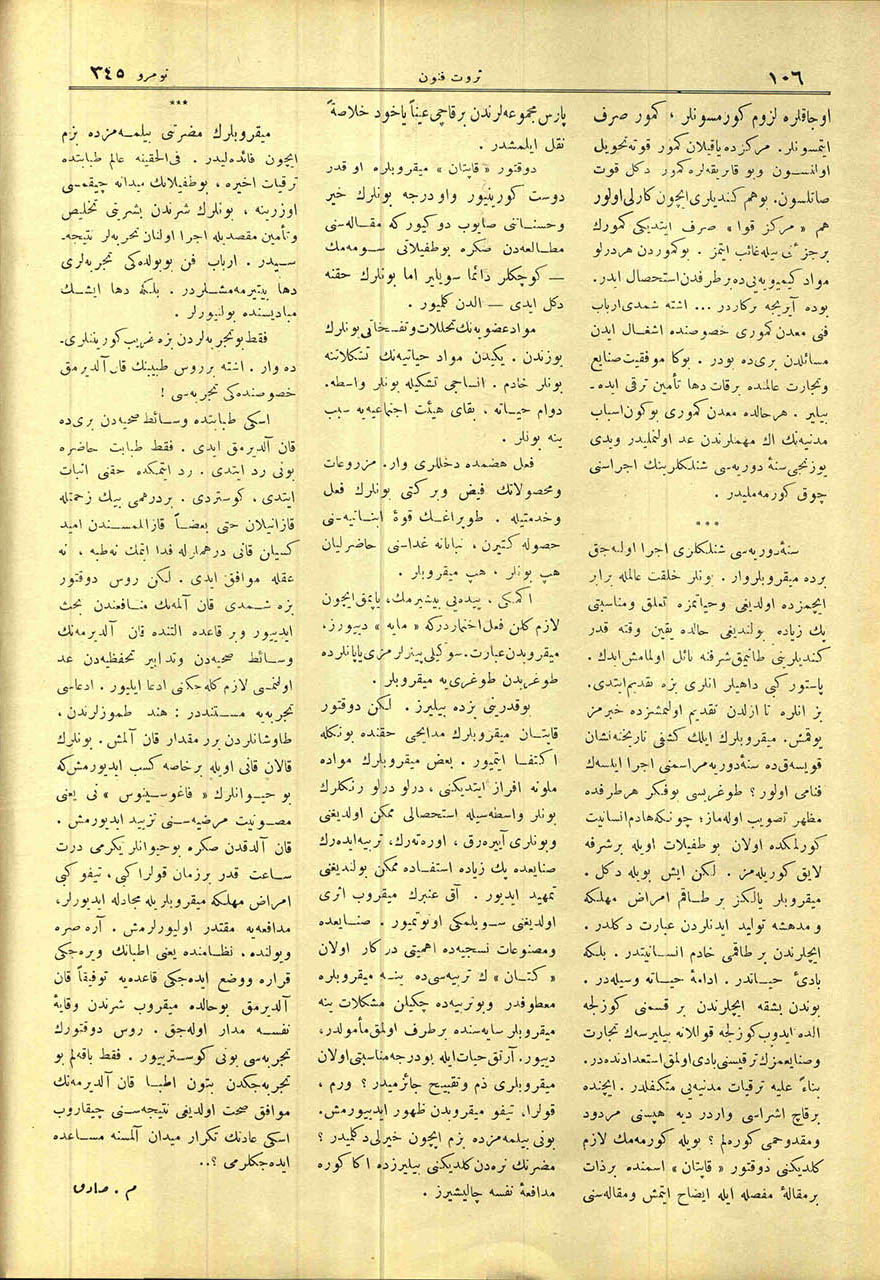 ١٠٦
ثروت فنون
نومرو ٣٤٥
اوجاقلره لزوم كورمسونلر ، كمور صرف
ايتمسونلر . مركزده ياقيلان كمور قوته تحويل
اولنسون وبو فابريقه لره كمور دكل قوت
صاتلسون . بوهم كنديلرى ايچون كارلى اولور
هم « مركز قوا » صرف ايتديكى كمورك
برجزئنى بيله غائب ايتمز . بوكموردن هردرلو
مواد كيميويه يى ده برطرفدن استحصال ايدر .
بوده آيريجه بركاردر ... اشته شمدى ارباب
فنى معدن كمورى خصوصنده اشغال ايدن
مسائلدن برى ده بودر . بوكا موفقيت صنايع
وتجارت عالمنده برقات دها تأمين ترقى ايده ـ
بيلير . هرحالده معدن كمورى بوكون اسباب
مدنيه نك اك مهملرندن عد اولنمليدر ويدى
يوزنجى سنهٔ دوريه سى شنلكلرينك اجراسنى
چوق كورمه مليدر .
***
سنهٔ دوريه سى شنلكلرى اجرا اوله جق
برده ميقروبلر وار . بونلر خلقت عالمله برابر
ايچمزده اولديغى وحياتمزه تعلق ومناسبتى
پك زياده بولنديغى حالده يقين وقته قدر
كنديلرينى طانيمق شرفنه نائل اولمامش ايدك .
پاستور كبى داهيلر انلرى بزه تقديم ايتدى .
بز انلره تا ازلدن تقديم اولنمشزده خبرمز
يوقمش . ميقروبلرك ايلك كشفى تاريخنه نشان
قويسه ق ده سنهٔ دوريه مراسمنى اجرا ايلسه ك
فنامى اولور ؟ طوغريسى بوفكر هرطرفده
مظهر تصويب اوله ماز ؛ چونكه هادم انسانيت
كورلمكده اولان بو طفيلات اويله برشرفه
لايق كوريله مز . لكن ايش بويله دكل .
ميقروبلر يالكز بر طاقم امراض مهلكه
و مدهشه توليد ايدنلردن عبارت دكلدر .
ايچلرندن بر طاقمى خادم انسانيتدر . بلكه
بادئ حياتدر . ادامهٔ حياته وسيله در .
بوندن بشقه ايچلرندن بر قسمنى كوزلجه
الده ايدوب كوزلجه قوللانه بيليرسه ك تجارت
وصنايعمزك ترقيسنى بادى اولمق استعدادنده در .
بناءً عليه ترقيات مدنيه يى متكفلدر . ايچنده
برقاچ اشراسى واردر ديه هپسنى مردود
ومقدوحمى كوره لم ؟ بويله كورمه مك لازم
كلديكنى دوقتور « قاپتان » اسمنده برذات
برمقالهٔ مفصله ايله ايضاح ايتمش ومقاله سنى
پارس مجموعه لرندن برقاچى عيناً ياخود خلاصةً
نقل ايلمشدر .
دوقتور « قاپتان » ميقروبلره او قدر
دوست كورينيور واو درجه بونلرك خير
وحسناتنى صايوب دوكيور كه مقاله سنى
مطالعه دن صكره بوطفيلاتى سومه مك
— كوچكلر دائما سويلير اما بونلرك حقنه
دكل ايدى — الدن كلميور .
مواد عضويه نك تحللات وتفسخاتى بونلرك
يوزندن . يكيدن مواد حياتيه نك تشكلاتنه
بونلر خادم . انساجى تشكيله بونلر واسطه .
دوام حياته ، بقاى هيئت اجتماعيه يه سبب
ينه بونلر .
فعل هضمده دخللرى وار . مزروعات
ومحصولاتك فيض وبركتى بونلرك فعل
وخدمتيله . طوپراغك قوهٔ انباتيه سنى
حصوله كتيرن ، نباتاته غداسنى حاضرليان
هپ بونلر ، هپ ميقروبلر .
اكمكى ، پيده يى پيشيرمك ، ياپمق ايچون
لازم كلن فعل اختماردركه « مايه » دييورز .
ميقروبدن عبارت . سوكيلى پينرلرمزى ياپانلرده
طوغريدن طوغرى يه ميقروبلر .
بوقدرينى بزده بيليرز . لكن دوقتور
قاپتان ميقروبلرك مدايحى حقنده بونكله
اكتفا ايتميور . بعض ميقروبلرك مواده
ملونه افراز ايتديكنى ، درلو درلو رنكلرك
بونلر واسطه سيله استحصالى ممكن اولديغنى
وبونلرى آييره رق ، اوره ته رك ، تربيه ايده رك
صنايعده پك زياده استفاده ممكن بولنديغنى
تمهيد ايديور . آق عنبرك ميقروب اثرى
اولديغنى سويلمكى اونوتميور . صنايعده
ومصنوعات نسجيه ده اهميتى دركار اولان
« كتان » ك تربيه سى ده ينه ميقروبلره
معطوفدر وبوتربيه ده چكيلن مشكلات ينه
ميقروبلر سايه سنده برطرف اولمق مأمولدر ،
دييور . آرتق حيات ايله بودرجه مناسبتى اولان
ميقروبلرى ذم وتقبيح جائزميدر ؟ ورم ،
قولرا ، تيفو ميقروبدن ظهور ايدييورمش .
بونى بيلمه مزده بزم ايچون خيرلى دكليدر ؟
مضرتك نره دن كلديكنى بيليرزده اكا كوره
مدافعهٔ نفسه چاليشيرز .
***
ميقروبلرك مضرتنى بيلمه مزده بزم
ايچون فائده ليدر . فى الحقيقه عالم طبابتده
ترقيات اخيره ، بوطفيلاتك ميدانه چيقمسى
اوزرينه ، بونلرك شرندن بشريتى تخليص
وتأمين مقصديله اجرا اولنان تجربه لر نتيجه ـ
سيدر . ارباب فن بويولده كى تجربه لرى
دها بيتيرمه مشلردر . بلكه دها ايشك
مباديسنده بولنيورلر .
فقط بوتجربه لردن بزه غريب كورينه نلرى ـ
ده وار . اشته برروس طبيبنك قان آلديرمق
خصوصنده كى تجربه سى !
اسكى طبابتده وسائط صحيه دن برى ده
قان آلديرمق ايدى . فقط طبابت حاضره
بونى رد ايتدى . رد ايتمكده حقنى اثبات
ايتدى ، كوستردى . بردرهمى بيك زحمتله
قازانيلان حتى بعضاً قازانلمسندن اميد
كسيلن قانى درهملرله فدا ايتمك نه طبه ، نه
عقله موافق ايدى . لكن روس دوقتور
بزه شمدى قان آلمه نك منافعندن بحث
ايدييور وبر قاعده التنده قان آلديرمه نك
وسائط صحيه دن وتدابير تحفظيه دن عد
اولنمسى لازم كله جكنى ادعا ايليور . ادعاسى
تجربه يه مستنددر : هند طموزلرندن ،
طاوشانلردن برر مقدار قان آلمش . بونلرك
قالان قانى اويله برخاصه كسب ايديورمش كه
بو حيوانلرك « فاغوسيتوس » نى يعنى
مصونيت مرضيه سنى تزييد ايديورمش .
قان آلدقدن صكره بوحيوانلر يكرمى درت
ساعت قدر برزمان قولراكبى ، تيفو كبى
امراض مهلكه ميقروبلريله مجادله ايديورلر ،
مدافعه يه مقتدر اوليورلرمش . آره صره
ويولنده ، نظامنده يعنى اطبانك ويره جكى
قراره ووضع ايده جكى قاعده يه توفيقاً قان
آلديرمق بوحالده ميقروب شرندن وقايهٔ
نفسه مدار اوله جق . روس دوقتورك
تجربه سى بونى كوسترييور . فقط باقه لم بو
تجربه جكدن بتون اطبا قان آلديرمه نك
موافق صحت اولديغى نتيجه سنى چيقاروب
اسكى عادتك تكرار ميدان آلمسنه مساعده
ايده جكلرمى ؟..
م . صادق